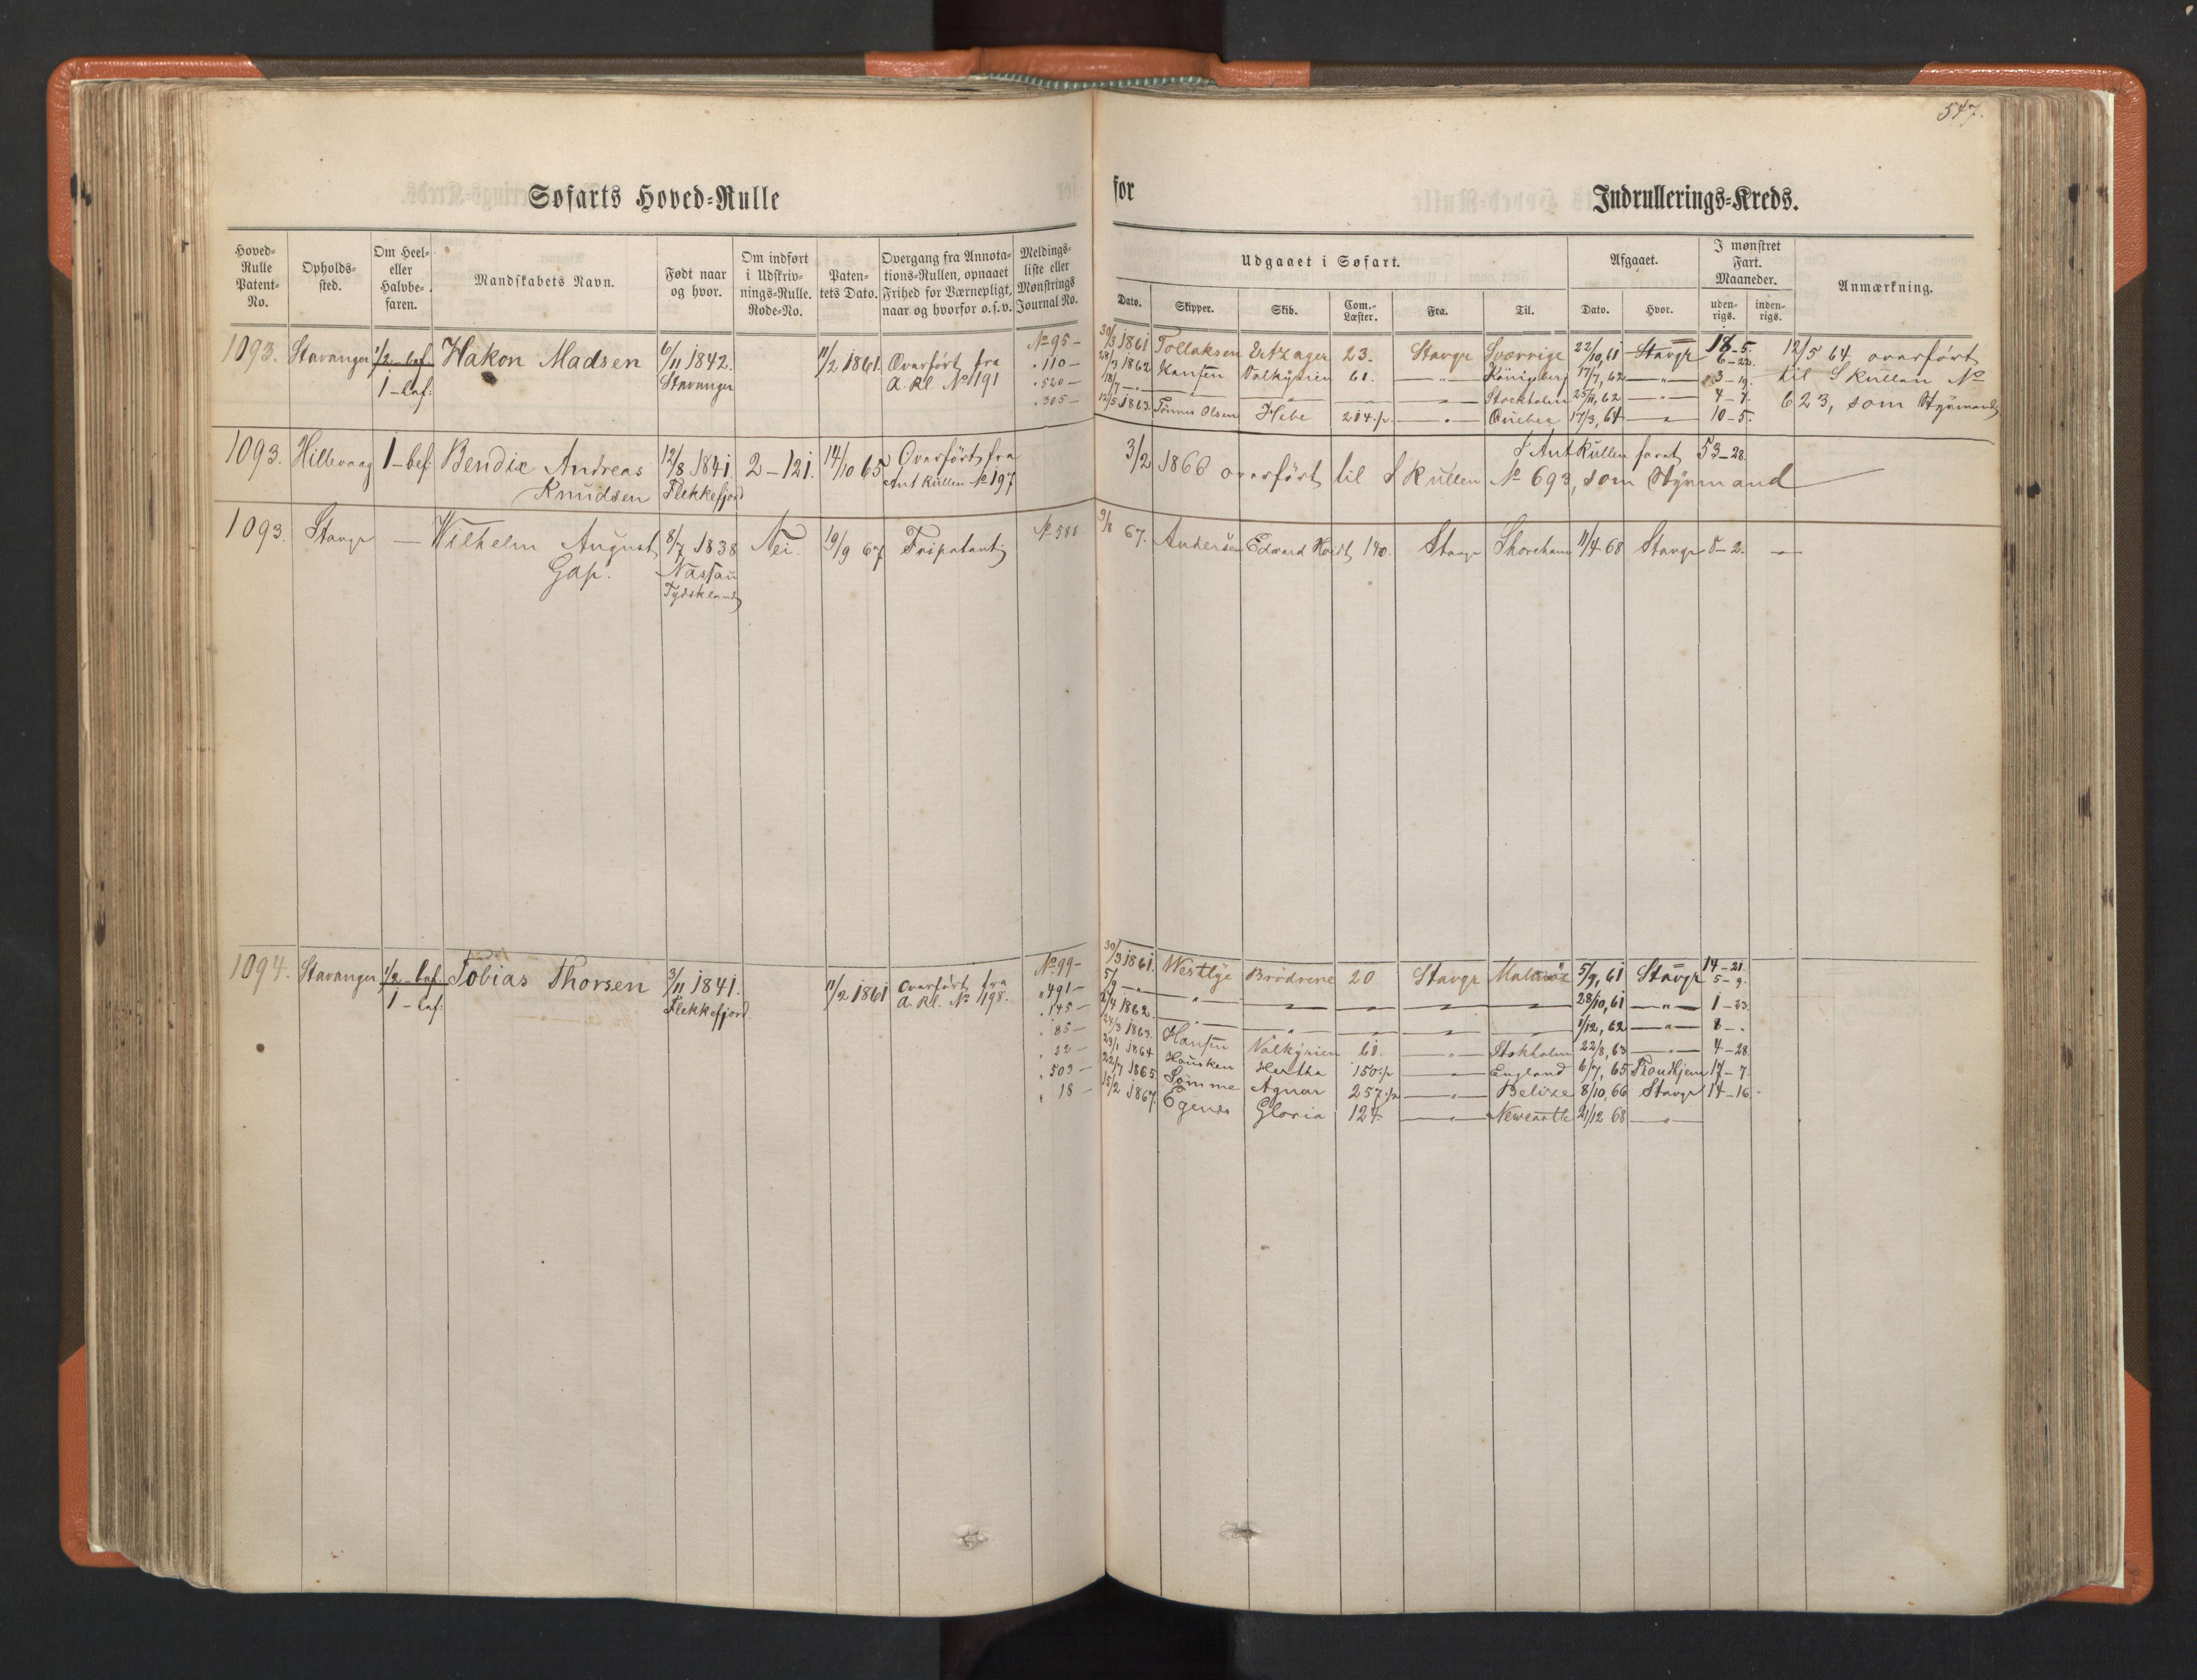 547.
Søfarts Hoved-Rulle
for
Indrullerings-Kreds.
Hoved-Rulle Patent-No.
Opholds-sted.
Om Heel- eller Halvbe-faren.
Mandskabets Navn.
Født naar og hvor.
Om indført i Udskriv-nings-Rulle. Rode-No.
Paten-tets Dato.
Overgang fra Annota-tions-Rullen, opnaaet Frihed for Værnepligt, naar og hvorfor o.s.v.
Meldings-liste eller Mønstrings Journal No.
Udgaaet i Søfart.
Dato. Skipper. Skib. Com.-Læster. Fra. Til.
Afgaaet.
Dato. Hvor.
I mønstret Fart. Maaneder.
uden-rigs. inden-rigs.
Anmærkning.
1093. Stavanger 1/2 bef 1 - bef: Hakon Madsen 6/11 1842. Stavanger 11/2 1861 Overført fra A. Rl. No 191
No 95 - 30/3 1861 Tollaksen 23. Stavgr Sverrige 22/10,61 Stavgr 18-5.
" 110 - 28/3 1862 Hansen Valkyrien 61. — " — Königsberg 17/7, 62 — " — 6-20.
" 520 - 18/7 — " — Stockholm 25/11, 62 — " — 3-19. 4-7.
" 305 - 12/5 1863. Tønnes Olsen Hebe 214.p. — " — Quebec 17/3, 64 — " — 10-5.
12/5 64 overført
til S Rullen No
623, som Styrmand
1093. Hillevaag 1 - bef: Bendix Andreas Knudsen 12/8 1841. Flekkefjord 2 - 121. 14/10 65 Overført fra Ant Rullen No 197
I Ant Rullen faret 53-28.
3/2 1866 overført til S Rullen No 693, som Styrmand
1093. Stavgr — Wilhelm August Gap. 8/7 1838 Nassau Tydskland Nei. 19/9 67 Fripatent
No 588 9/8 67. Andersen Edward 140. Stavgr Shoreham 11/4 68 Stavgr 8-2. —
1094. Stavanger 1/2 - bef 1 - bef: Tobias Thorsen 3/11 1841. Flekkefjord. 11/2 1861 Overført fra A. Rl. No 198.
No 99 - 30/3 1861. Westlye Brødrene 20 Stavgr 5/9, 61 Stavgr 14-21. 5-9.
" 491 - 5/9 — " — 28/10, 61 — " — 1-23.
" 145 - 2/4 1862. — " — 1/12, 62 — " — 8 - .
" 85 - 24/3 1863. Hansen Valkyrien 61. — " — Stokholm 22/8, 63 — " — 4-28.
" 22 - 29/1 1864 Hausken Hertha 150.p — " — England 6/7, 65 Trondhjem 17-7.
" 503 - 22/7 1865 Sømme Agnar 257.p — " — Belize 8/10, 66 Stavgr 14-16.
" 18 - 15/2 1867. Egenes Gloria 124. — " — Newcastle 21/12 68 — " —